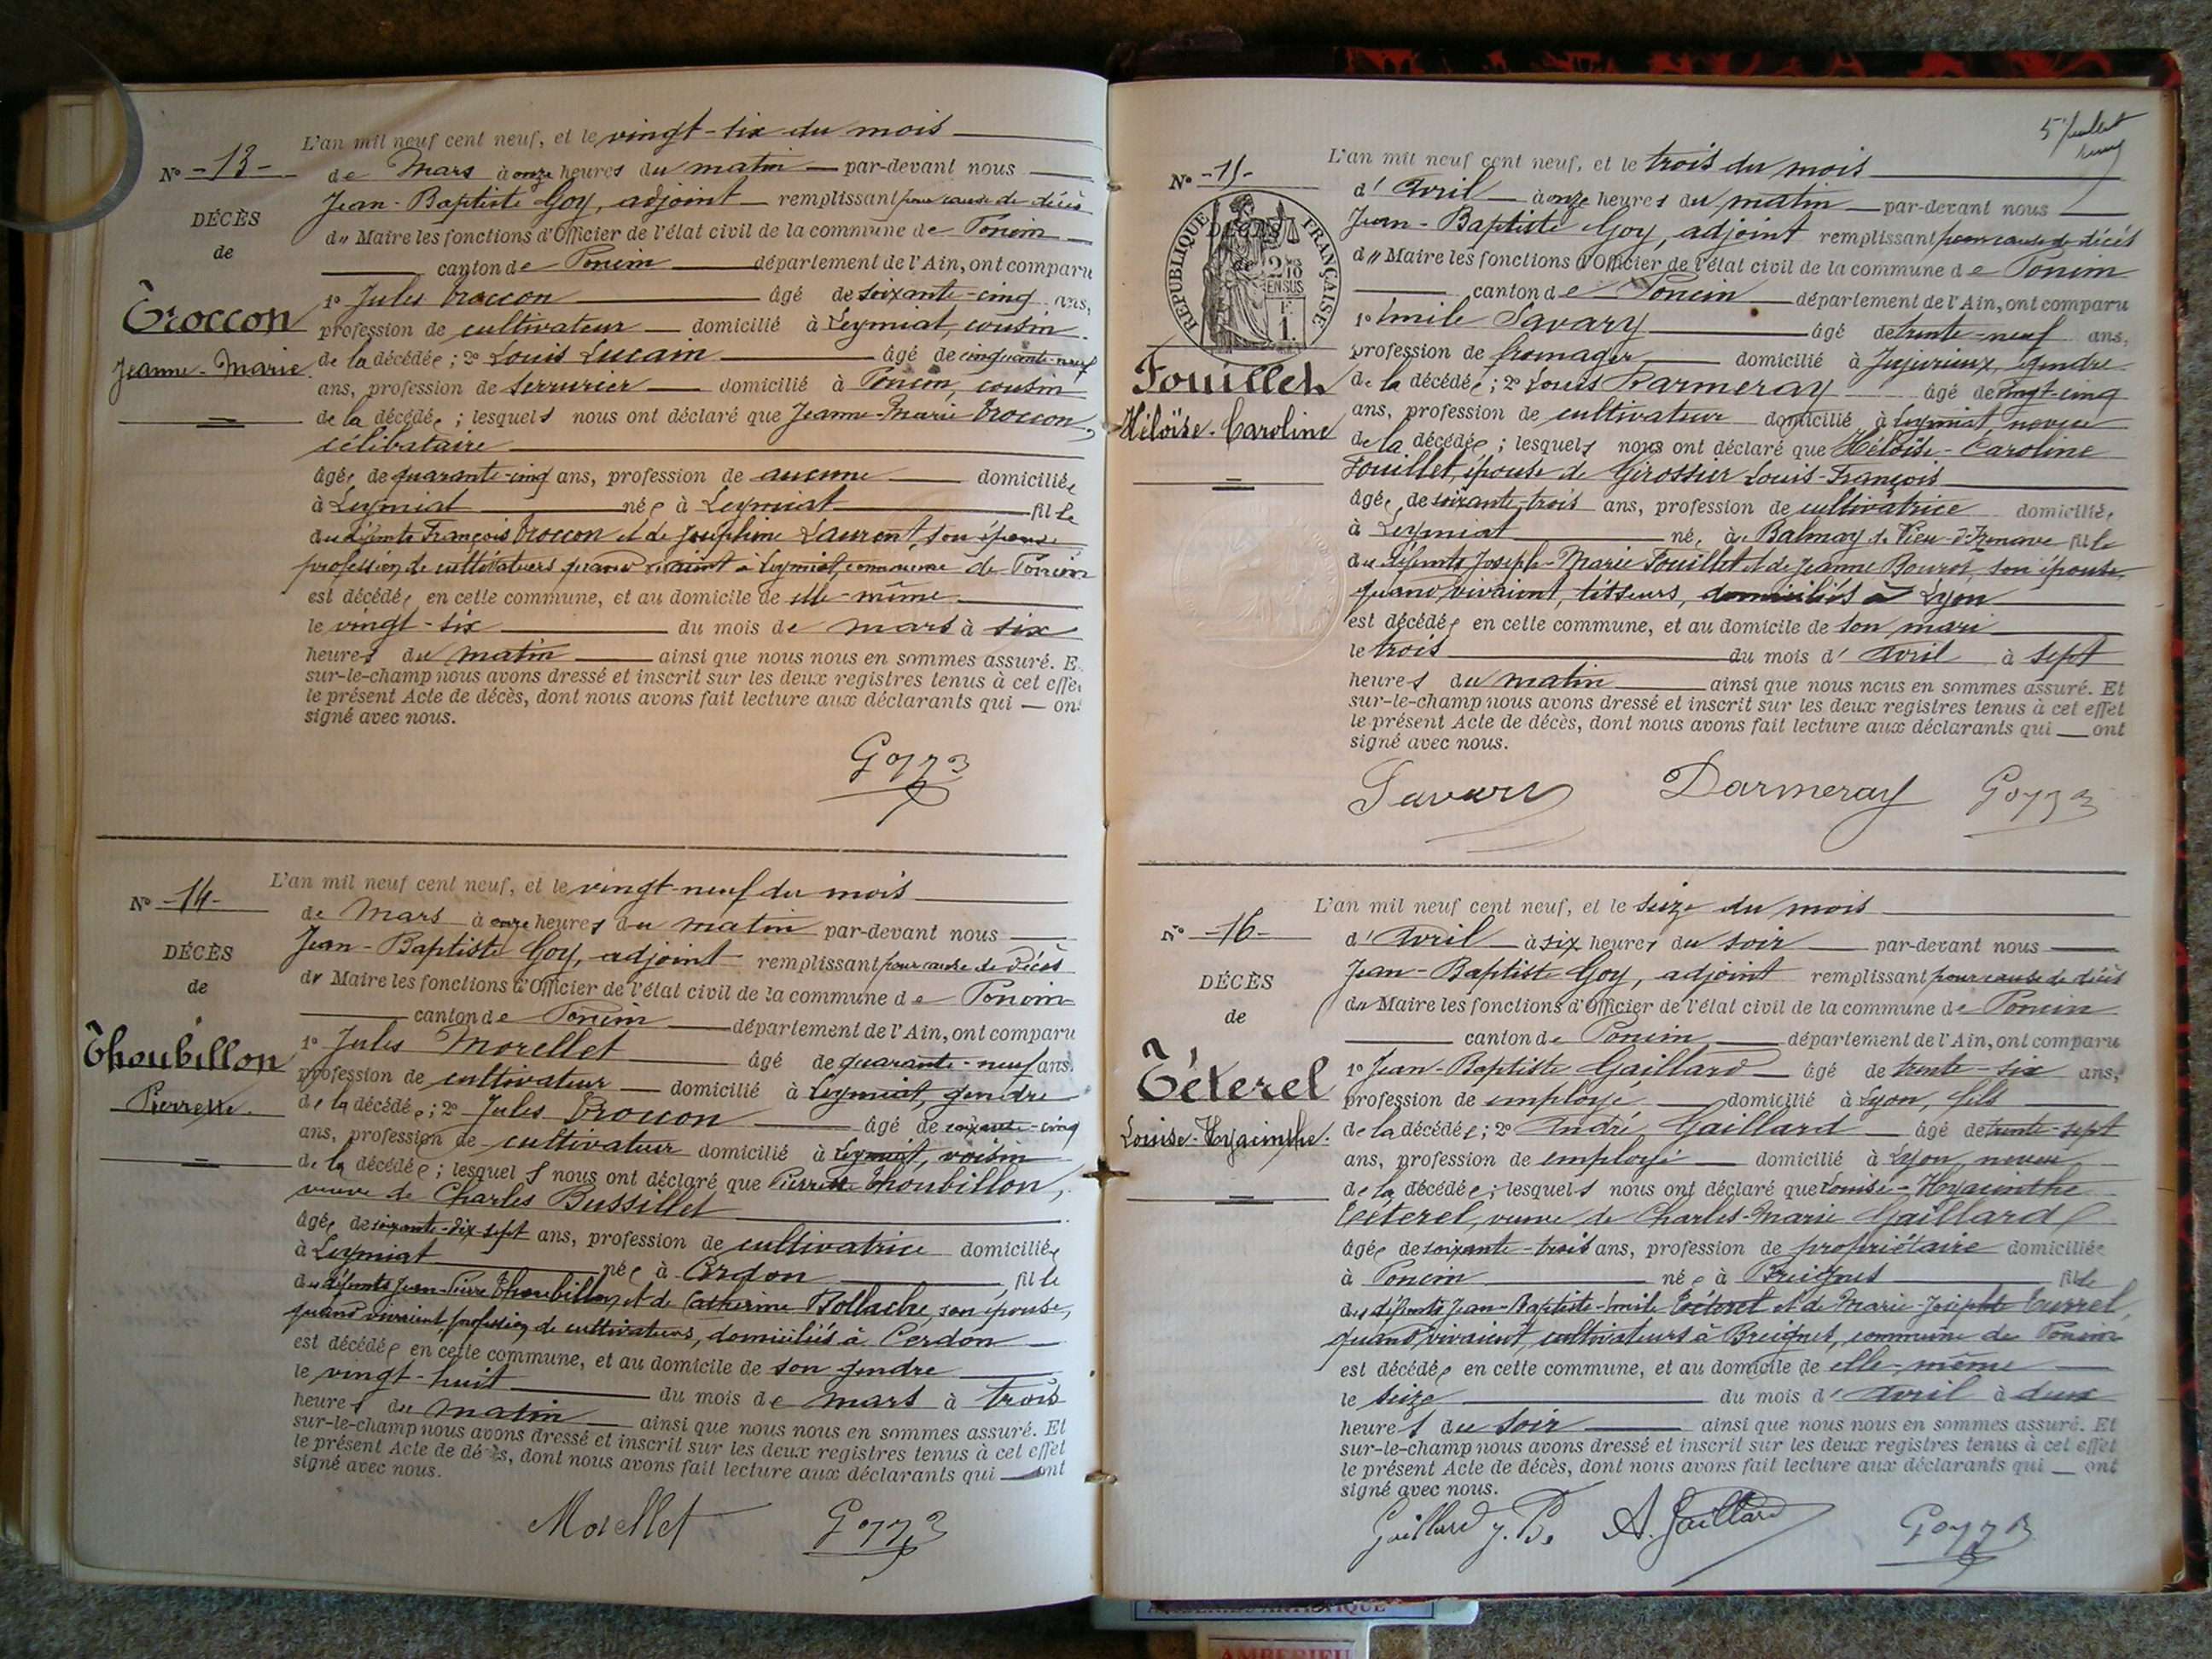 L'an mil neuf cent neuf, et le vingt-six du mois
N° -13- de Mars à onze heures du matin par-devant nous
Jean-Baptiste Goy, adjoint remplissant pour cause de décès
DÉCÈS
du Maire les fonctions d'Officier de l'état civil de la commune de Poncin
de
canton de Poncin département de l'Ain, ont comparu
1° Jules Troccon âgé de soixante-cinq ans,
Troccon
profession de cultivateur domicilié à Leymiat, cousin
Jeanne-Marie
de la décédée; 2° Louis Lucain âgé de cinquante-neuf
ans, profession de serrurier domicilié à Poncin, cousin
de la décédée; lesquels nous ont déclaré que Jeanne-Marie Troccon,
célibataire
âgée de quarante-cinq ans, profession de aucune domiciliée
à Leymiat née à Leymiat fille
des défunts François Troccon et de Joséphine Laurent, son épouse
profession de cultivateurs quand vivaient à Leymiat, commune de Poncin
est décédée en cette commune, et au domicile de elle-même
le vingt-six du mois de mars à six
heures du matin ainsi que nous nous en sommes assuré. E
sur-le-champ nous avons dressé et inscrit sur les deux registres tenus à cet effe
le présent Acte de décès, dont nous avons fait lecture aux déclarants qui — ont
signé avec nous.
Goy JB
L'an mil neuf cent neuf, et le vingt-neuf du mois
N° -14-
de Mars à onze heures du matin par-devant nous
Jean-Baptiste Goy, adjoint remplissant pour cause de Décès
DÉCÈS
du Maire les fonctions d'Officier de l'état civil de la commune de Poncin
de
canton de Poncin département de l'Ain, ont comparu
1° Jules Morellet âgé de quarante-neuf ans,
Thoubillon
profession de cultivateur domicilié à Leymiat, gendre
Pierrette.
de la décédée; 2° Jules Troccon âgé de soixante-cinq
ans, profession de cultivateur domicilié à Leymiat, voisin
de la décédée; lesquels nous ont déclaré que Pierrette Thoubillon,
veuve de Charles Bussillet
âgée de soixante-dix-sept ans, profession de cultivatrice domiciliée
à Leymiat née à Cerdon fille
des défunts Jean-Pierre Thoubillon et de Catherine Bollache, son épouse,
quand vivaient profession de cultivateurs, domiciliés à Cerdon
est décédée en cette commune, et au domicile de son gendre
le vingt-huit du mois de mars à trois
heures du matin ainsi que nous nous en sommes assuré. Et
sur-le-champ nous avons dressé et inscrit sur les deux registres tenus à cet effet
le présent Acte de décès, dont nous avons fait lecture aux déclarants qui — ont
signé avec nous.
Morellet Goy JB
5e feuillet
L'an mil neuf cent neuf, et le trois du mois
N° -15-
d'Avril à onze heures du matin par-devant nous
Jean-Baptiste Goy, adjoint remplissant pour cause de décès
RÉPUBLIQUE FRANÇAISE
DÉCÈS
de
2/10
EN SUS
F.
1.
du Maire les fonctions d'Officier de l'état civil de la commune de Poncin
canton de Poncin département de l'Ain, ont comparu
1° Émile Savary âgé de trente-neuf ans,
profession de fromager domicilié à Jujurieux, gendre
Fouillet
de la décédée; 2° Louis Darmeray âgé de vingt-cinq
Héloïse-Caroline
ans, profession de cultivateur domicilié à Leymiat, neveu
de la décédée; lesquels nous ont déclaré que Héloïse-Caroline
Fouillet, épouse de Girossier Louis-François
âgée de soixante-trois ans, profession de cultivatrice domiciliée
à Leymiat née à Balmay de Vieu-d'Izenave fille
des défunts Joseph-Marie Fouillet et de Jeanne Bourot, son épouse,
quand vivaient, tisseurs, domiciliés à Lyon
est décédée en cette commune, et au domicile de son mari
le trois du mois d'Avril à sept
heures du matin ainsi que nous nous en sommes assuré. Et
sur-le-champ nous avons dressé et inscrit sur les deux registres tenus à cet effet
le présent Acte de décès, dont nous avons fait lecture aux déclarants qui — ont
signé avec nous.
Savary Darmeray Goy JB
L'an mil neuf cent neuf, et le seize du mois
N° -16-
d'Avril à six heures du soir par-devant nous
Jean-Baptiste Goy, adjoint remplissant pour cause de décès
DÉCÈS
du Maire les fonctions d'Officier de l'état civil de la commune de Poncin
de
canton de Poncin département de l'Ain, ont comparu
1° Jean-Baptiste Gaillard âgé de trente-six ans,
Téterel
profession de employé domicilié à Lyon, fils
Louise-Hyacinthe.
de la décédée; 2° André Gaillard âgé de trente-sept
ans, profession de employé domicilié à Lyon, neveu
de la décédée; lesquels nous ont déclaré que Louise-Hyacinthe
Téterel, veuve de Charles-Marie Gaillard
âgée de soixante-trois ans, profession de propriétaire domiciliée
à Poncin née à Breignes fille
des défunts Jean-Baptiste-Émile Téterel et de Marie-Josephte Turrel,
quand vivaient, cultivateurs à Breignes, commune de Poncin
est décédée en cette commune, et au domicile de elle-même
le seize du mois d'Avril à deux
heures du soir ainsi que nous nous en sommes assuré. Et
sur-le-champ nous avons dressé et inscrit sur les deux registres tenus à cet effet
le présent Acte de décès, dont nous avons fait lecture aux déclarants qui — ont
signé avec nous.
Gaillard J.B. A. Gaillard Goy JB
AMBERIEU